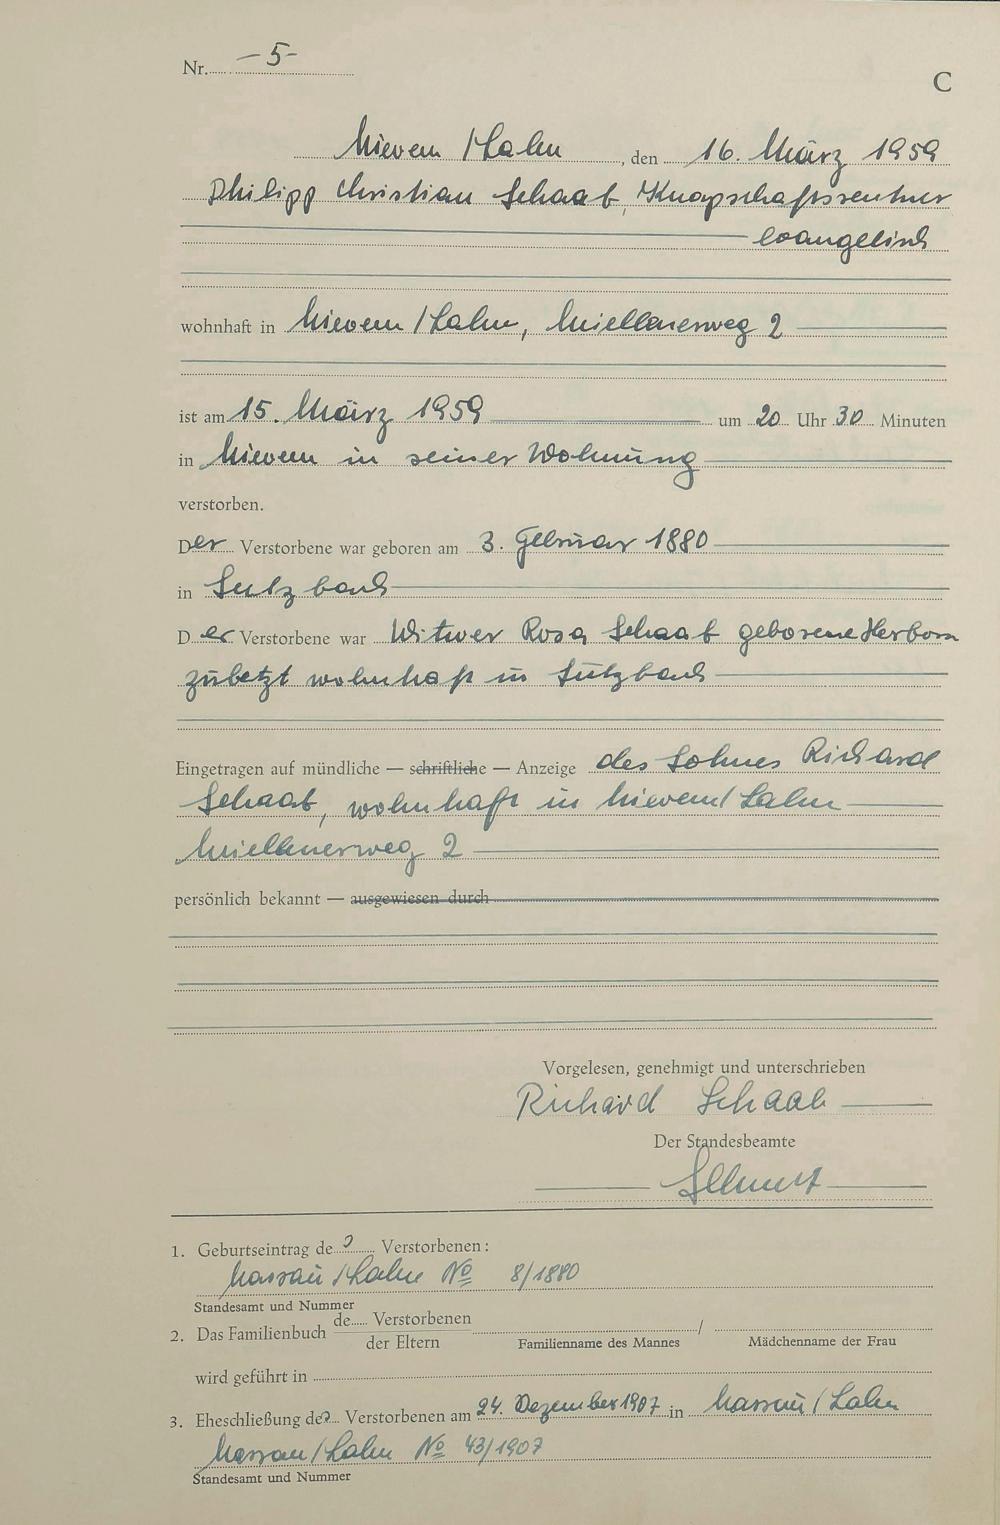 Nr. -5-
C
Nievern / Lahn, den 16. März 1959
Philipp Christian Schaab, Knapschaftsrentner
evangelisch
wohnhaft in Nievern / Lahn, Miellenerweg 2
ist am 15. März 1959 um 20 Uhr 30 Minuten
in Nievern in seiner Wohnung
verstorben.
Der Verstorbene war geboren am 3. Februar 1880
in Sulzbach
Der Verstorbene war Witwer Rosa Schaab geborene Herborn
zuletzt wohnhaft in Sulzbach
Eingetragen auf mündliche — schriftliche — Anzeige des Sohnes Richard
Schaab, wohnhaft in Nievern / Lahn
Miellenerweg 2
persönlich bekannt — ausgewiesen durch
Vorgelesen, genehmigt und unterschrieben
Richard Schaab
Der Standesbeamte
1. Geburtseintrag des Verstorbenen:
Nassau / Lahn No 8/1880
Standesamt und Nummer
2. Das Familienbuch de Verstorbenen
der Eltern / Familienname des Mannes Mädchenname der Frau
wird geführt in
3. Eheschließung des Verstorbenen am 24. Dezember 1907 in Nassau / Lahn
Nassau / Lahn No 43/1907
Standesamt und Nummer